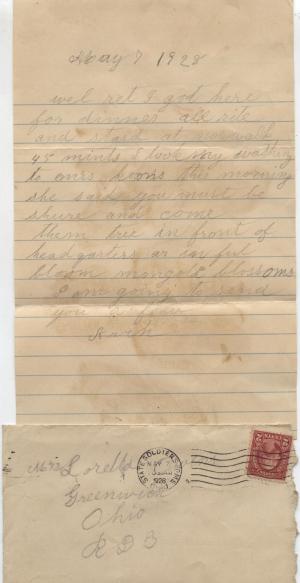 May 7 1928
wel ret I got here
for dinner all rite
and stard at norwalk
45 mints I took my washing
to mrs koons this morning
she said you must be
shure and come
them tree in front of
headgarters ar in ful
bloom mangole blossoms
I am going to send
you a few
Mrs Loretta
Greenwich
Ohio
RD3
STATE SOLDIERS HOME
MAY 7
1928
OHIO
2 CENTS 2